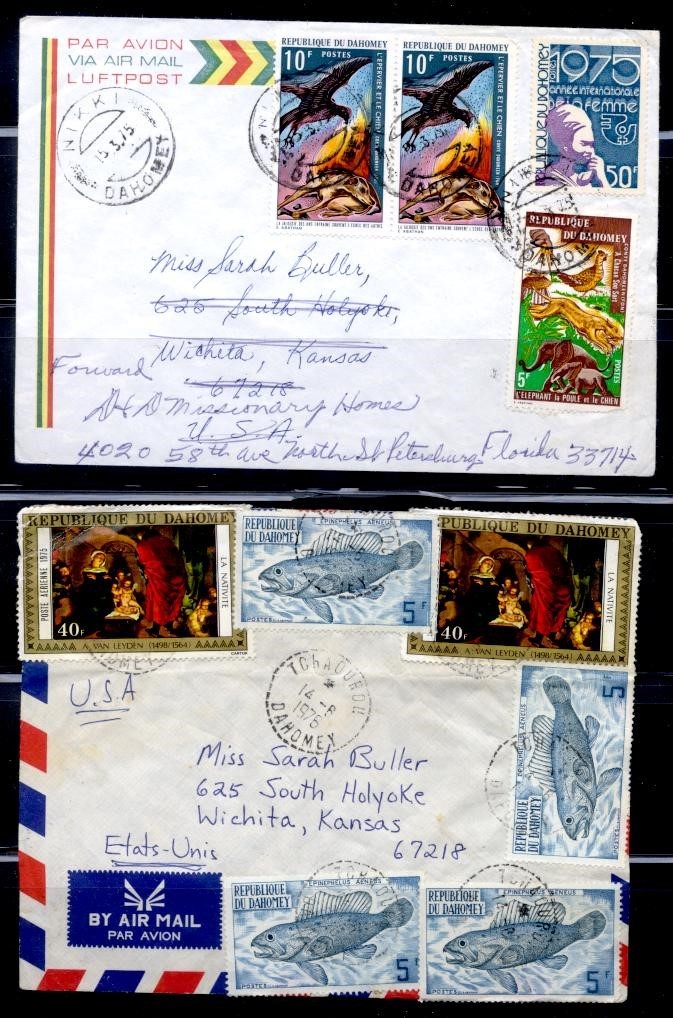 PAR AVION
VIA AIR MAIL
LUFTPOST
NIKKI
15.3.75
DAHOMEY
REPUBLIQUE DU DAHOMEY
10F POSTES
L'EPERVIER ET LE CHIEN
LA JALOUSIE DES UNS ENTRAINE SOUVENT L'ECHEC DES AUTRES
REPUBLIQUE DU DAHOMEY
10F POSTES
L'EPERVIER ET LE CHIEN
LA JALOUSIE DES UNS ENTRAINE SOUVENT L'ECHEC DES AUTRES
1975
année internationale
de la femme
REPUBLIQUE DU DAHOMEY
50F
REPUBLIQUE
DU DAHOMEY
A Chacun Son Sort
POSTES
5F
L'ELEPHANT la POULE et le CHIEN
Miss Sarah Buller,
625 South Holyoke,
Wichita, Kansas
Forward
67218
D & D Missionary Homes
U.S.A.
4020 58th ave North St Petersburg Florida 33714
REPUBLIQUE DU DAHOMEY
POSTE AERIENNE 1975
LA NATIVITE
40F
A. VAN LEYDEN (1498/1564)
CARTOR
REPUBLIQUE
DU DAHOMEY
EPINEPHELUS AENEUS
POSTES
5F
REPUBLIQUE DU DAHOMEY
LA NATIVITE
40F
A. VAN LEYDEN (1498/1564)
U.S.A
TCHAOUROU
14-8
1975
DAHOMEY
REPUBLIQUE
DU DAHOMEY
EPINEPHELUS AENEUS
5
Miss Sarah Buller
625 South Holyoke
Wichita, Kansas
67218
Etats-Unis
BY AIR MAIL
PAR AVION
REPUBLIQUE
DU DAHOMEY
EPINEPHELUS AENEUS
POSTES
5F
REPUBLIQUE
DU DAHOMEY
EPINEPHELUS AENEUS
POSTES
5F